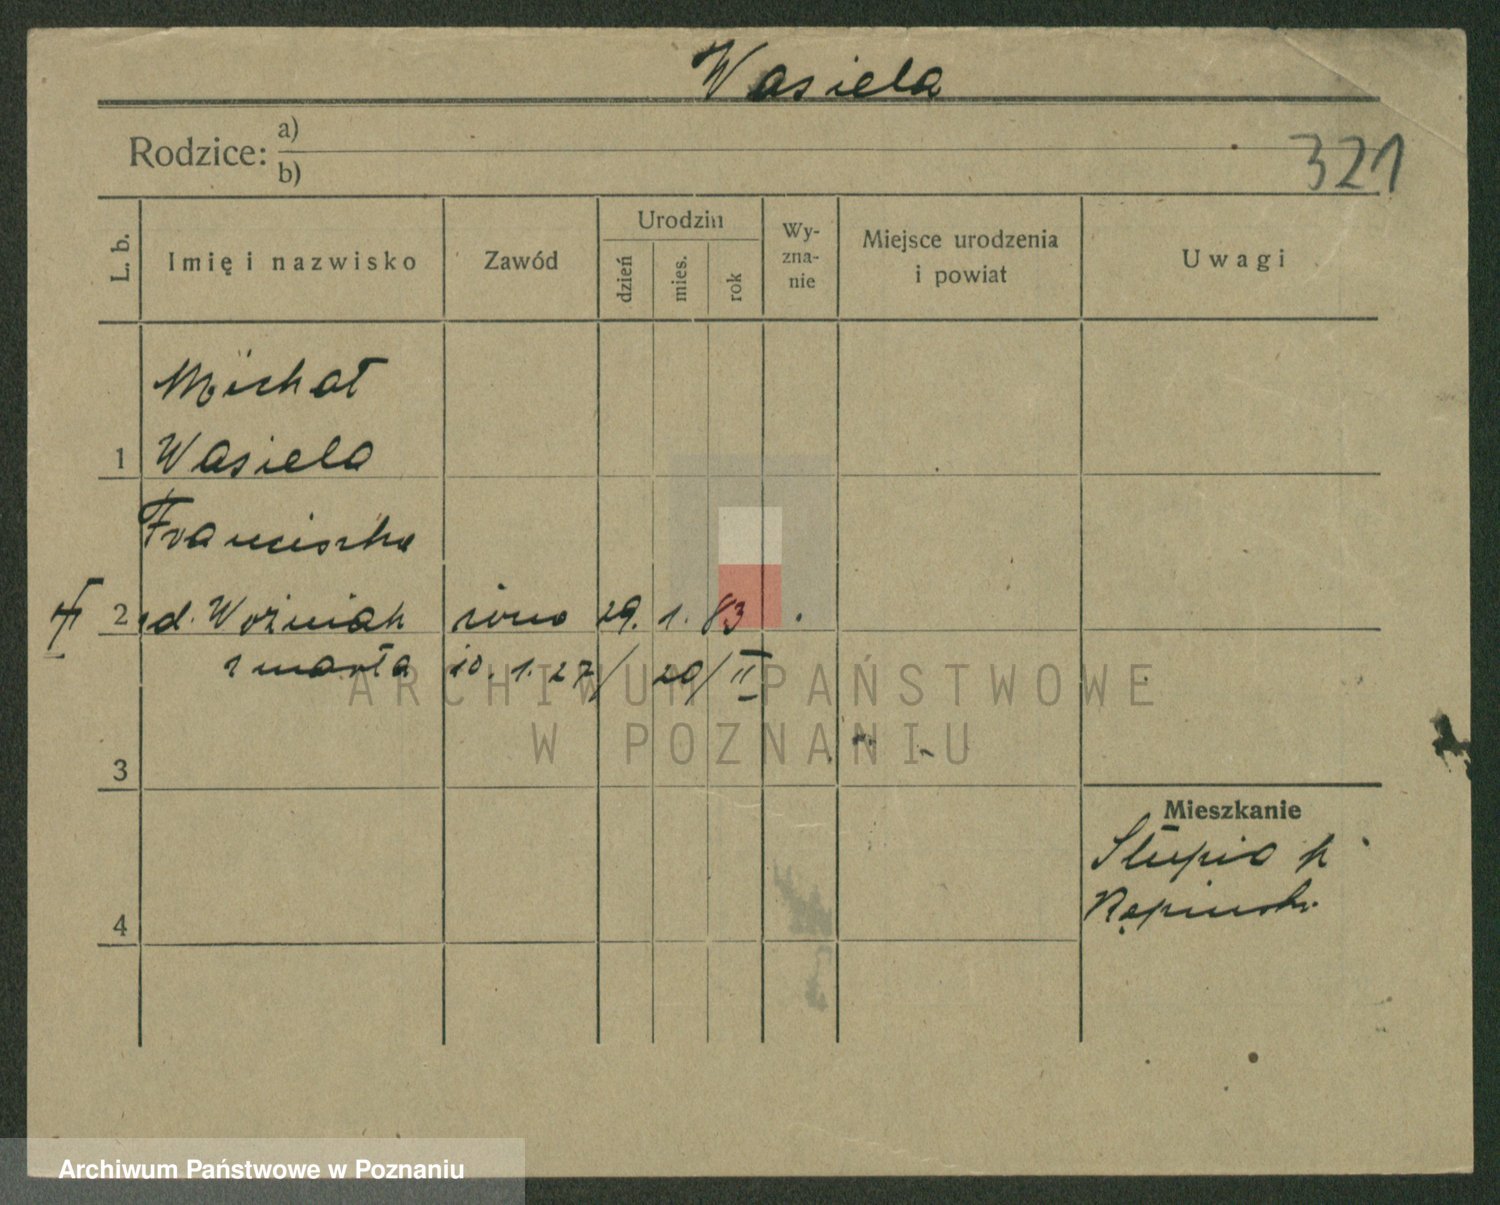 Wasiela
Rodzice: a)
b)
321
L. b.
Imię i nazwisko
Zawód
Urodzin
dzień
mies.
rok
Wy-
zna-
nie
Miejsce urodzenia
i powiat
Uwagi
Michał
1 Wasiela
Franciszka
2 d. Woźniak żona 29. 1. 83
zmarła 10. 1. 27/ 20/II
ARCHIWUM PAŃSTWOWE
W POZNANIU
3
Mieszkanie
Słupia p
4
Archiwum Państwowe w Poznaniu